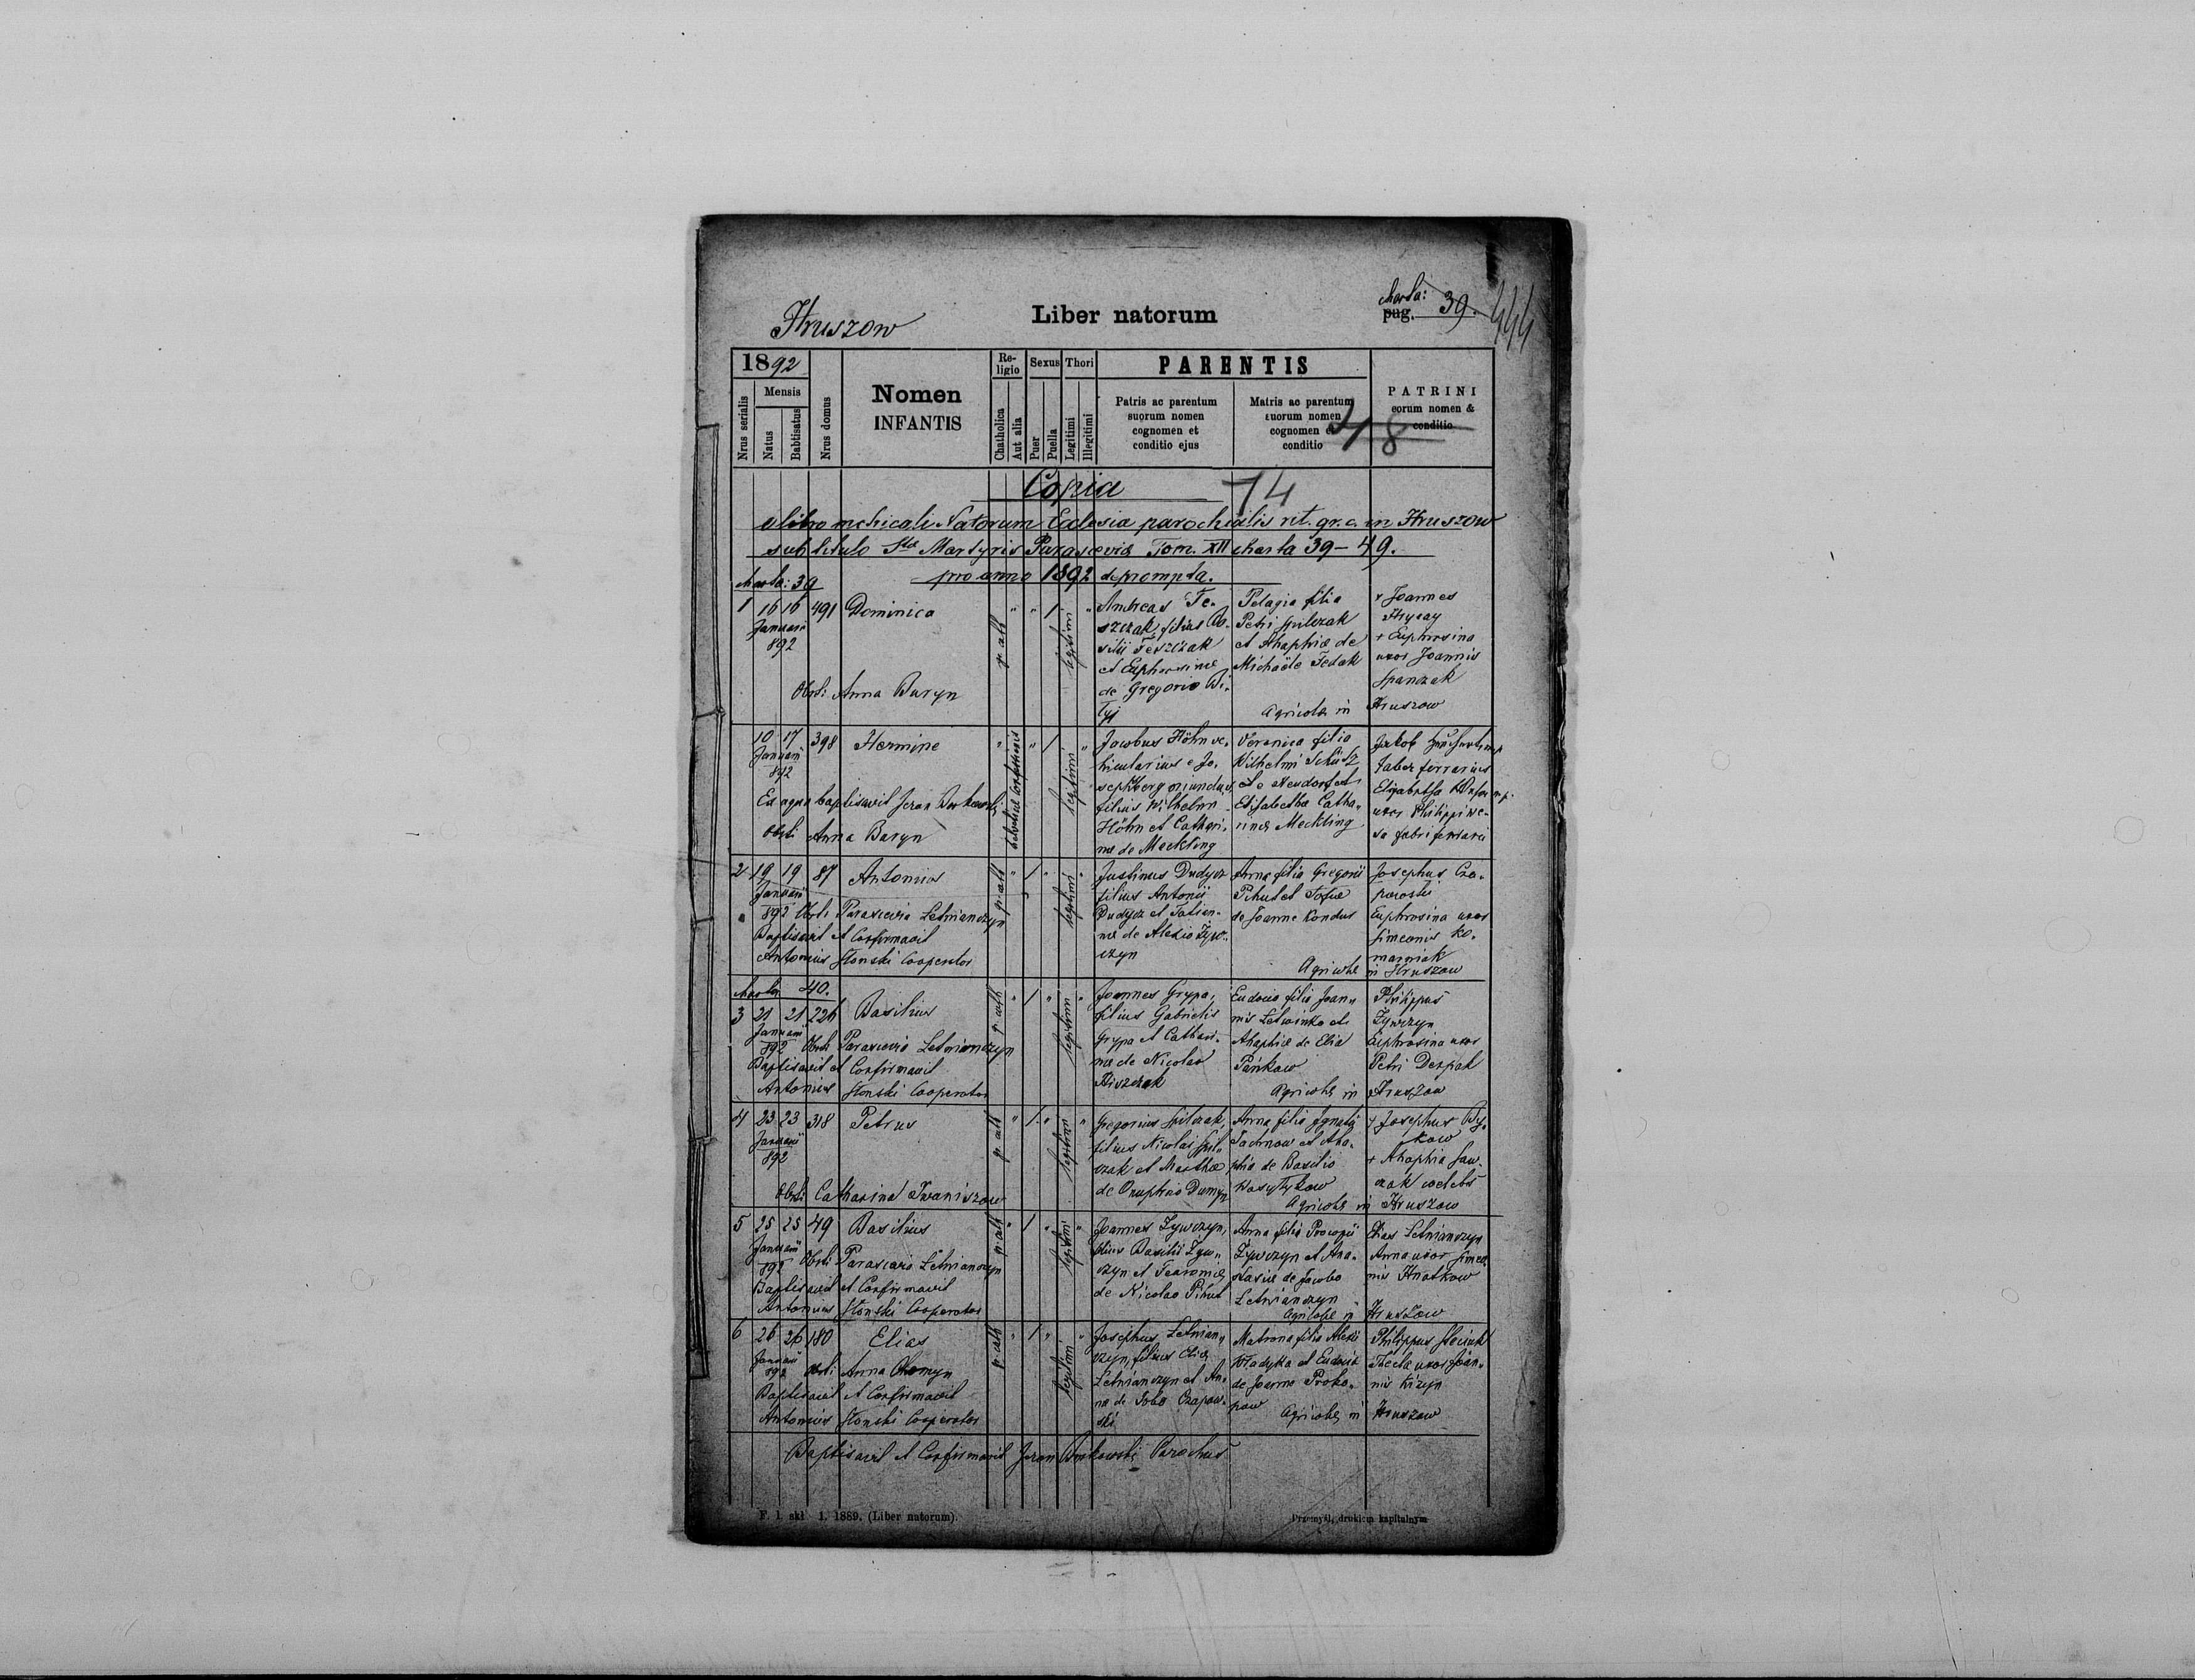 Hruszow
Liber natorum
charta:
pag. 39.
444
1892
Nrus serialis
Mensis
Natus
Babtisatus
Nrus domus
Nomen
INFANTIS
Re-
ligio
Chatholica
Aut alia
Sexus
Puer
Puella
Thori
Legitimi
Illegitimi
PARENTIS
Patris ac parentum
suorum nomen
cognomen et
conditio ejus
Matris ac parentum
suorum nomen
cognomen et
conditio
PATRINI
eorum nomen &
conditio
48
Copia
74
e libro metricali Natorum Eclesia parochialis rit. gr. c. in Hruszow
sub titulo Stae Martyris Parascevia Tom. XII charta 39-49.
pro anno 1892 deprompta.
charta: 39
1 16 16 491 Dominica
Januarii
892
Obsti Anna Buryn
gr. cath
legitimi
Andreas Te-
szczak, filius Ba-
silii Teszczak
et Euphrosinae
de Gregorio Bi-
lyj
Pelagia filia
Petri Spilczak
et Ahaphiae de
Michaële Fedak
Agricolae in Hruszow
+ Joannes
Hrycay
+ Euphrosina
uxor Joannis
Spanczak
10 17 398 Hermine
Januarii
892
Ex aqua baptisavit Jeron
Obsti Anna Buryn
helveticae confessionis
legitimi
Jacobus Höhn ve-
hicularius e Jo-
sephberg oriundus,
filius Wilhelm
Höhn et Cathari-
nae de Meckling
Veronica filia
Wilhelmi Schütz
de Neudorf et
Elisabetha Catha-
rinae Meckling
Jakob
faber ferrarius
Elisabetha
uxor Philippi We-
fabri ferrarii
2 19 19 87 Antonius
Januarii
892 Obsti Parascevia Letnianczyn
Baptisavit et Confirmavit
Antonius Slonski Cooperator
gr. cath
legitimi
Justinus Dudycz
filius Antonii
Dudycz et Tatian-
nae de Alexio Zyw-
czyn
Anna filia Gregorii
Pihut et Sofiae
de Joanne Kondus
Agricolae in Hruszow
Josephus Cza-
powski
Euphrosina uxor
Simeonis Ko-
marniak
charta 40.
3 21 21 226 Basilius
Januarii
892 Obsti Parascevia Letnianczyn
Baptisavit et Confirmavit
Antonius Slonski Cooperator
gr. cath
legitimi
Joannes Grypa,
filius Gabrielis
Grypa et Cathari-
nae de Nicolao
Hiszczak
Eudocia filia Joan-
nis Letwinko et
Ahaphiae de Elia
Pańkow
Agricolae in Hruszow
Philippus
Zywczyn
Euphrosina uxor
Petri Derpak
4 23 23 318 Petrus
Januarii
892
Obsti Catharina Iwaniszow
gr. cath
legitimi
Gregorius Spilczak,
filius Nicolai Spil-
czak et Martha
de Onuphrio Dumyn
Anna filia Ignatii
Jachnow et Aha-
phia de Basilio
Wasylykow
Agricolae in Hruszow
+ Josephus By-
kow
+ Ahaphia Saw-
czak coelebs
5 25 25 49 Basilius
Januarii
892 Obsti Parascevia Letnianczyn
Baptisavit et Confirmavit
Antonius Slonski Cooperator
gr. cath
legitimi
Joannes Zywczyn,
filius Basilii Zyw-
czyn et Fearoniae
de Nicolao Pihut
Anna filia Procopii
Zywczyn et Ana-
stasiae de Jacobo
Letnianczyn
Agricolae in Hruszow
Elias Letnianczyn
Anna uxor Simeo-
nis Hnatkow
6 26 26 180 Elias
Januarii
892 Obsti Anna Chomyn
Baptisavit et Confirmavit
Antonius Slonski Cooperator
gr. cath
legitimi
Josephus Letnian-
czyn, filius Eliae
Letnianczyn et An-
nae de Jobo Czapow-
ski
Matrona filia Alexii
Wladyka et Eudocia
de Joanne Proko-
pow
Agricolae in Hruszow
Philippus
Thecla uxor Joan-
nis Kizyn
Baptisavit et Confirmavit Jeron Parochus
F. 1. skł 1. 1889. (Liber natorum).
Przemyśl, drukiem kapitalnym